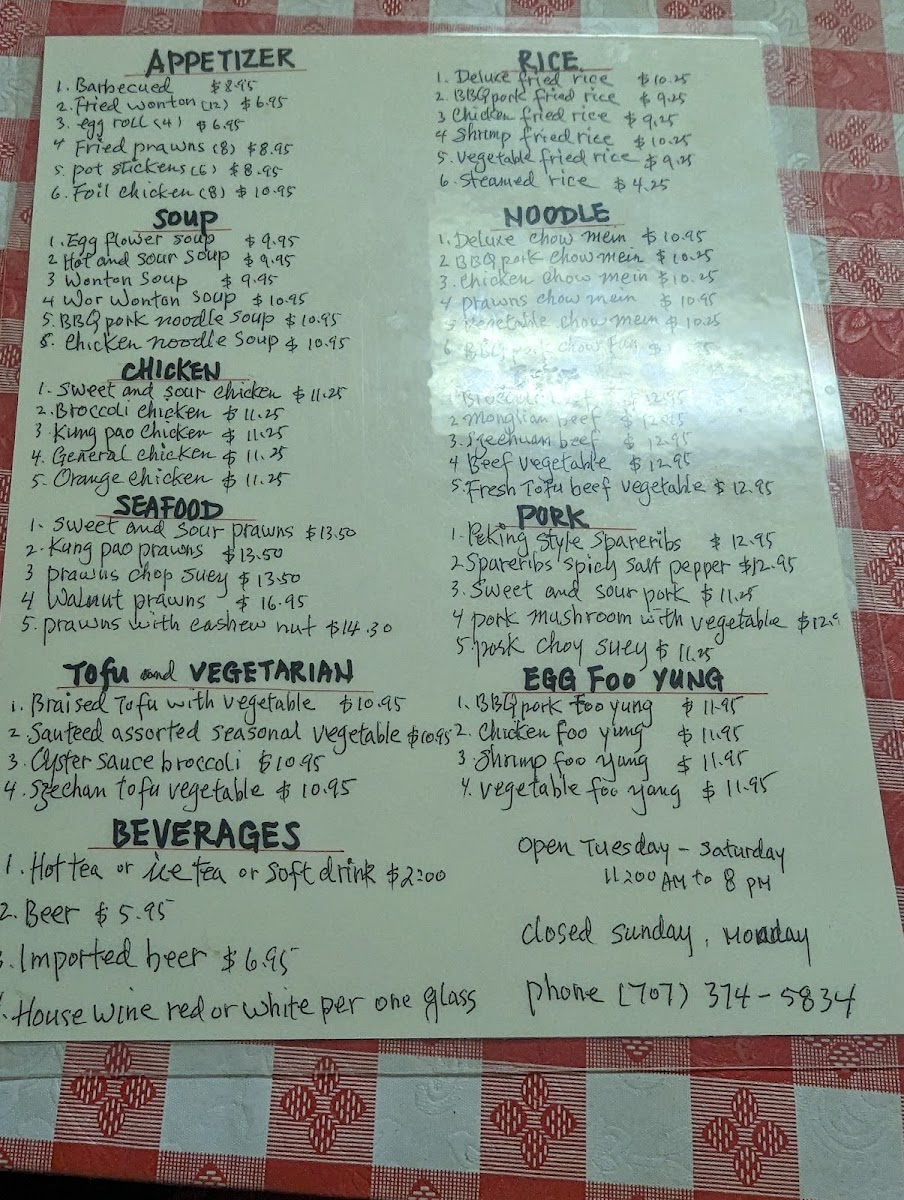 APPETIZER
1. Barbecued $8.95
2. Fried wonton (12) $6.95
3. egg roll (4) $6.95
4 Fried prawns (8) $8.95
5. pot stickens (6) $8.95
6. Foil chicken (8) $10.95
SOUP
1. Egg flower soup $9.95
2 Hot and sour soup $9.95
3 Wonton Soup $9.95
4 Wor Wonton soup $10.95
5. BBQ pork noodle soup $10.95
6. chicken noodle soup $10.95
CHICKEN
1. sweet and sour chicken $11.25
2. Broccoli chicken $11.25
3 Kung pao chicken $11.25
4. General chicken $11.25
5. Orange chicken $11.25
SEAFOOD
1. Sweet and sour prawns $13.50
2. Kung pao prawns $13.50
3 prawns chop suey $13.50
4 Walnut prawns $16.95
5. prawns with cashew nut $14.30
TOFU and VEGETARIAN
1. Braised Tofu with vegetable $10.95
2. Sauteed assorted seasonal vegetable $10.95
3. Oyster sauce broccoli $10.95
4. Szechan tofu vegetable $10.95
BEVERAGES
1. Hot tea or ice tea or soft drink $2.00
2. Beer $5.95
3. Imported beer $6.95
House wine red or white per one glass
RICE
1. Deluxe fried rice $10.25
2. BBQ pork fried rice $9.25
3 Chicken fried rice $9.25
4 Shrimp fried rice $10.25
5. Vegetable fried rice $9.25
6. Steamed rice $4.25
NOODLE
1. Deluxe chow mein $10.95
2 BBQ pork chow mein $10.25
3. Chicken chow mein $10.25
4 prawns chow mein $10.95
5 Vegetable chow mein $10.25
6 BBQ pork chow fun
Broccoli beef $12.95
2 Monglian beef $12.95
3. Szechuan beef $12.95
4 Beef vegetable $12.95
5. Fresh Tofu beef vegetable $12.95
PORK
1. Peking style spareribs $12.95
2 Spareribs spicy salt pepper $12.95
3. Sweet and sour pork $11.25
4 pork mushroom with vegetable $12.9
5 pork choy suey $11.25
EGG FOO YUNG
1. BBQ pork foo yung $11.95
2. Chicken foo yung $11.95
3 Shrimp foo yung $11.95
4. vegetable foo yang $11.95
open Tuesday - Saturday
11:00 AM to 8 PM
closed sunday, Monday
phone (707) 374-5834